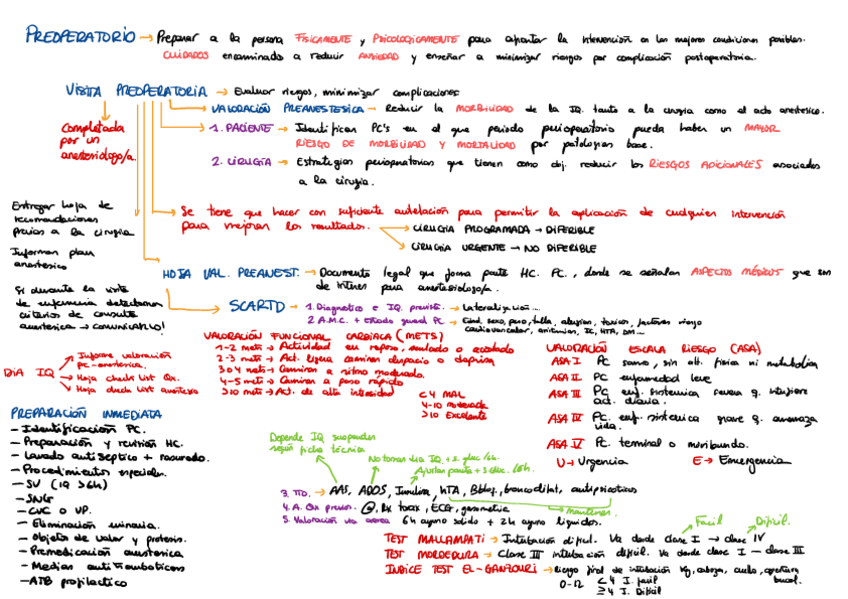 PREOPERATORIO → Preparar a la persona FÍSICAMENTE y PSICOLÓGICAMENTE para afrontar la intervención en las mejores condiciones posibles.
CUIDADOS encaminado a reducir ANSIEDAD y enseñar a minimizar riesgos por complicación postoperatoria.
VISITA PREOPERATORIA → Evaluar riesgos, minimizar complicaciones
completada por un anestesiólogo/a.
VALORACIÓN PREANESTESICA → Reducir la MORBILIDAD de la IQ. tanto a la cirugía como al acto anestésico.
1. PACIENTE → Identificar PC's en el que periodo perioperatorio pueda haber un MAYOR
RIESGO DE MORBILIDAD Y MORTALIDAD por patologías base.
2. CIRUGÍA → Estrategias perioperatorias que tienen como obj. reducir los RIESGOS ADICIONALES asociados
a la cirugía.
Entregar hoja de
recomendaciones
previas a la cirugía
Informar plan
anestésico
Si durante la visita
de enfermería detectamos
criterios de consulta
anestésica → COMUNICARLO!
Se tiene que hacer con suficiente antelación para permitir la aplicación de cualquier intervención
para mejorar los resultados.
CIRUGÍA PROGRAMADA → DIFERIBLE
CIRUGÍA URGENTE → NO DIFERIBLE
HOJA VAL. PREANEST. → Documento legal que forma parte HC. PC., donde se señalan ASPECTOS MÉDICOS que son
de interés para anestesiólogo/a.
SCARTD → 1. Diagnóstico e IQ. prevista. → Lateralización...
2. A.M.C. + Estado gnral PC → Edad, sexo, peso, talla, alergias, tóxicos, factores riesgo
cardiovascular, arritmias, IC, HTA, DM...
VALORACIÓN FUNCIONAL CARDÍACA (METS)
1-2 mets → Actividad en reposo, sentado o acostado
2-3 mets → Act. ligera caminar despacio o deprisa
3 o 4 mets → Caminar a ritmo moderado.
4-5 mets → Caminar a paso rápido
>10 mets → Act. de alta intensidad
<4 MAL
4-10 moderada
>10 Excelente
VALORACIÓN ESCALA RIESGO (ASA)
ASA I PC sano, sin alt. física ni metabólica
ASA II PC enfermedad leve
ASA III PC enf. sistémica severa q. interfiere
act. diaria.
ASA IV PC. enf. sistémica grave q. amenaza
vida.
ASA V PC. terminal o moribundo.
U → Urgencia E → Emergencia
DÍA IQ
Informe valoración
PC-anestésica.
Hoja check list Qx.
Hoja check list anestesia
PREPARACIÓN INMEDIATA
- Identificación PC.
- Preparación y revisión HC.
- Lavado antiséptico + rasurado.
- Procedimientos especiales.
- SV (IQ >6h)
- SNG
- CVC o VP.
- Eliminación urinaria.
- Objetos de valor y prótesis.
- Premedicación anestésica
- Medias antitrombóticas
- ATB profiláctico
Depende IQ suspender
según ficha técnica
No toman día IQ + s. gluc/6h.
Ajustar pauta + s gluc. /6h.
3. TTO. → AAS, ADOS, Insulina, HTA, Bbloq, broncodilat, antipsicóticos
mantener.
4. A. Qx previos. → @, Rx tórax, ECG, gasometría
5. Valoración vía aérea 6h ayuno sólido + 2h ayuno líquidos.
Fácil Difícil.
TEST MALLAMPATI → Intubación difícil. Va desde clase I → clase IV
TEST MORDEDURA → Clase III intubación difícil. Va desde clase I — clase III
ÍNDICE TEST EL-GANZOURI → Riesgo final de intubación Kg, cabeza, cuello, apertura
bucal.
0-12 <4 I. fácil
≥4 I. Difícil